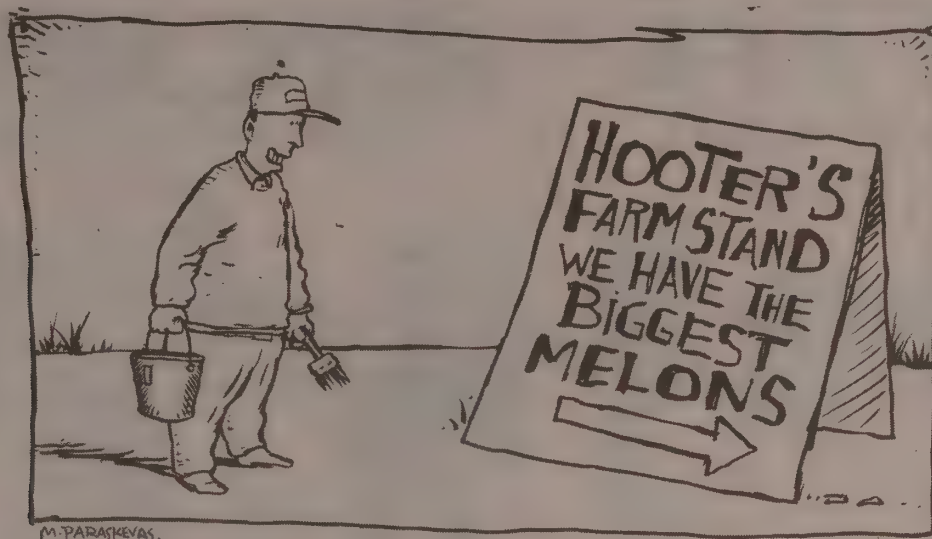 HOOTER'S
FARM STAND
WE HAVE THE
BIGGEST
MELONS
M. PARASKEVAS.